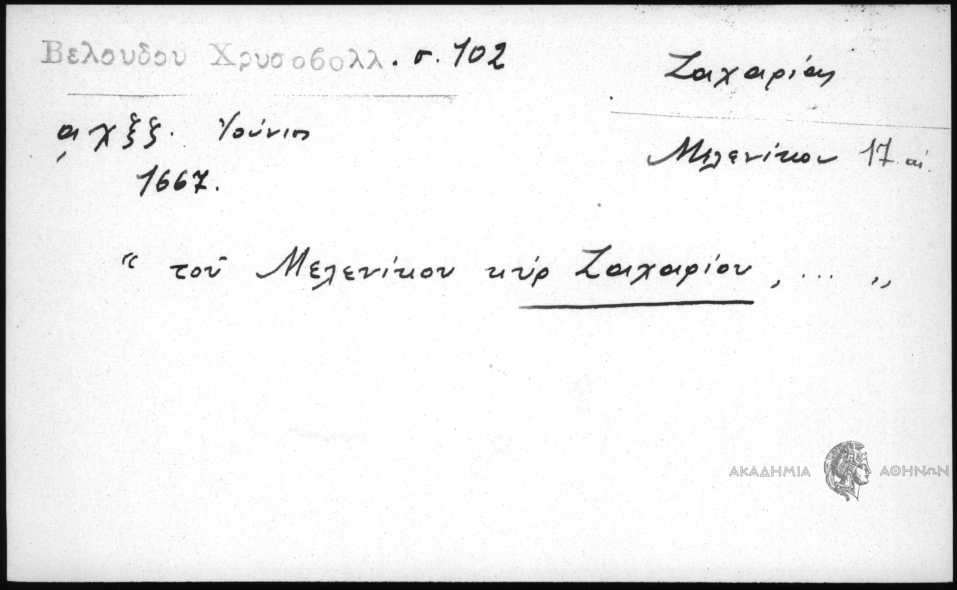 Βελουδου Χρυσοβολλ. σ. 102
Ζαχαρίας
͵αχξζ. Ἰούνιος
Μελενίκου 17 αἰ.
1667.
“ τοῦ Μελενίκου κὺρ Ζαχαρίου, ... „
ΑΚΑΔΗΜΙΑ ΑΘΗΝΩΝ